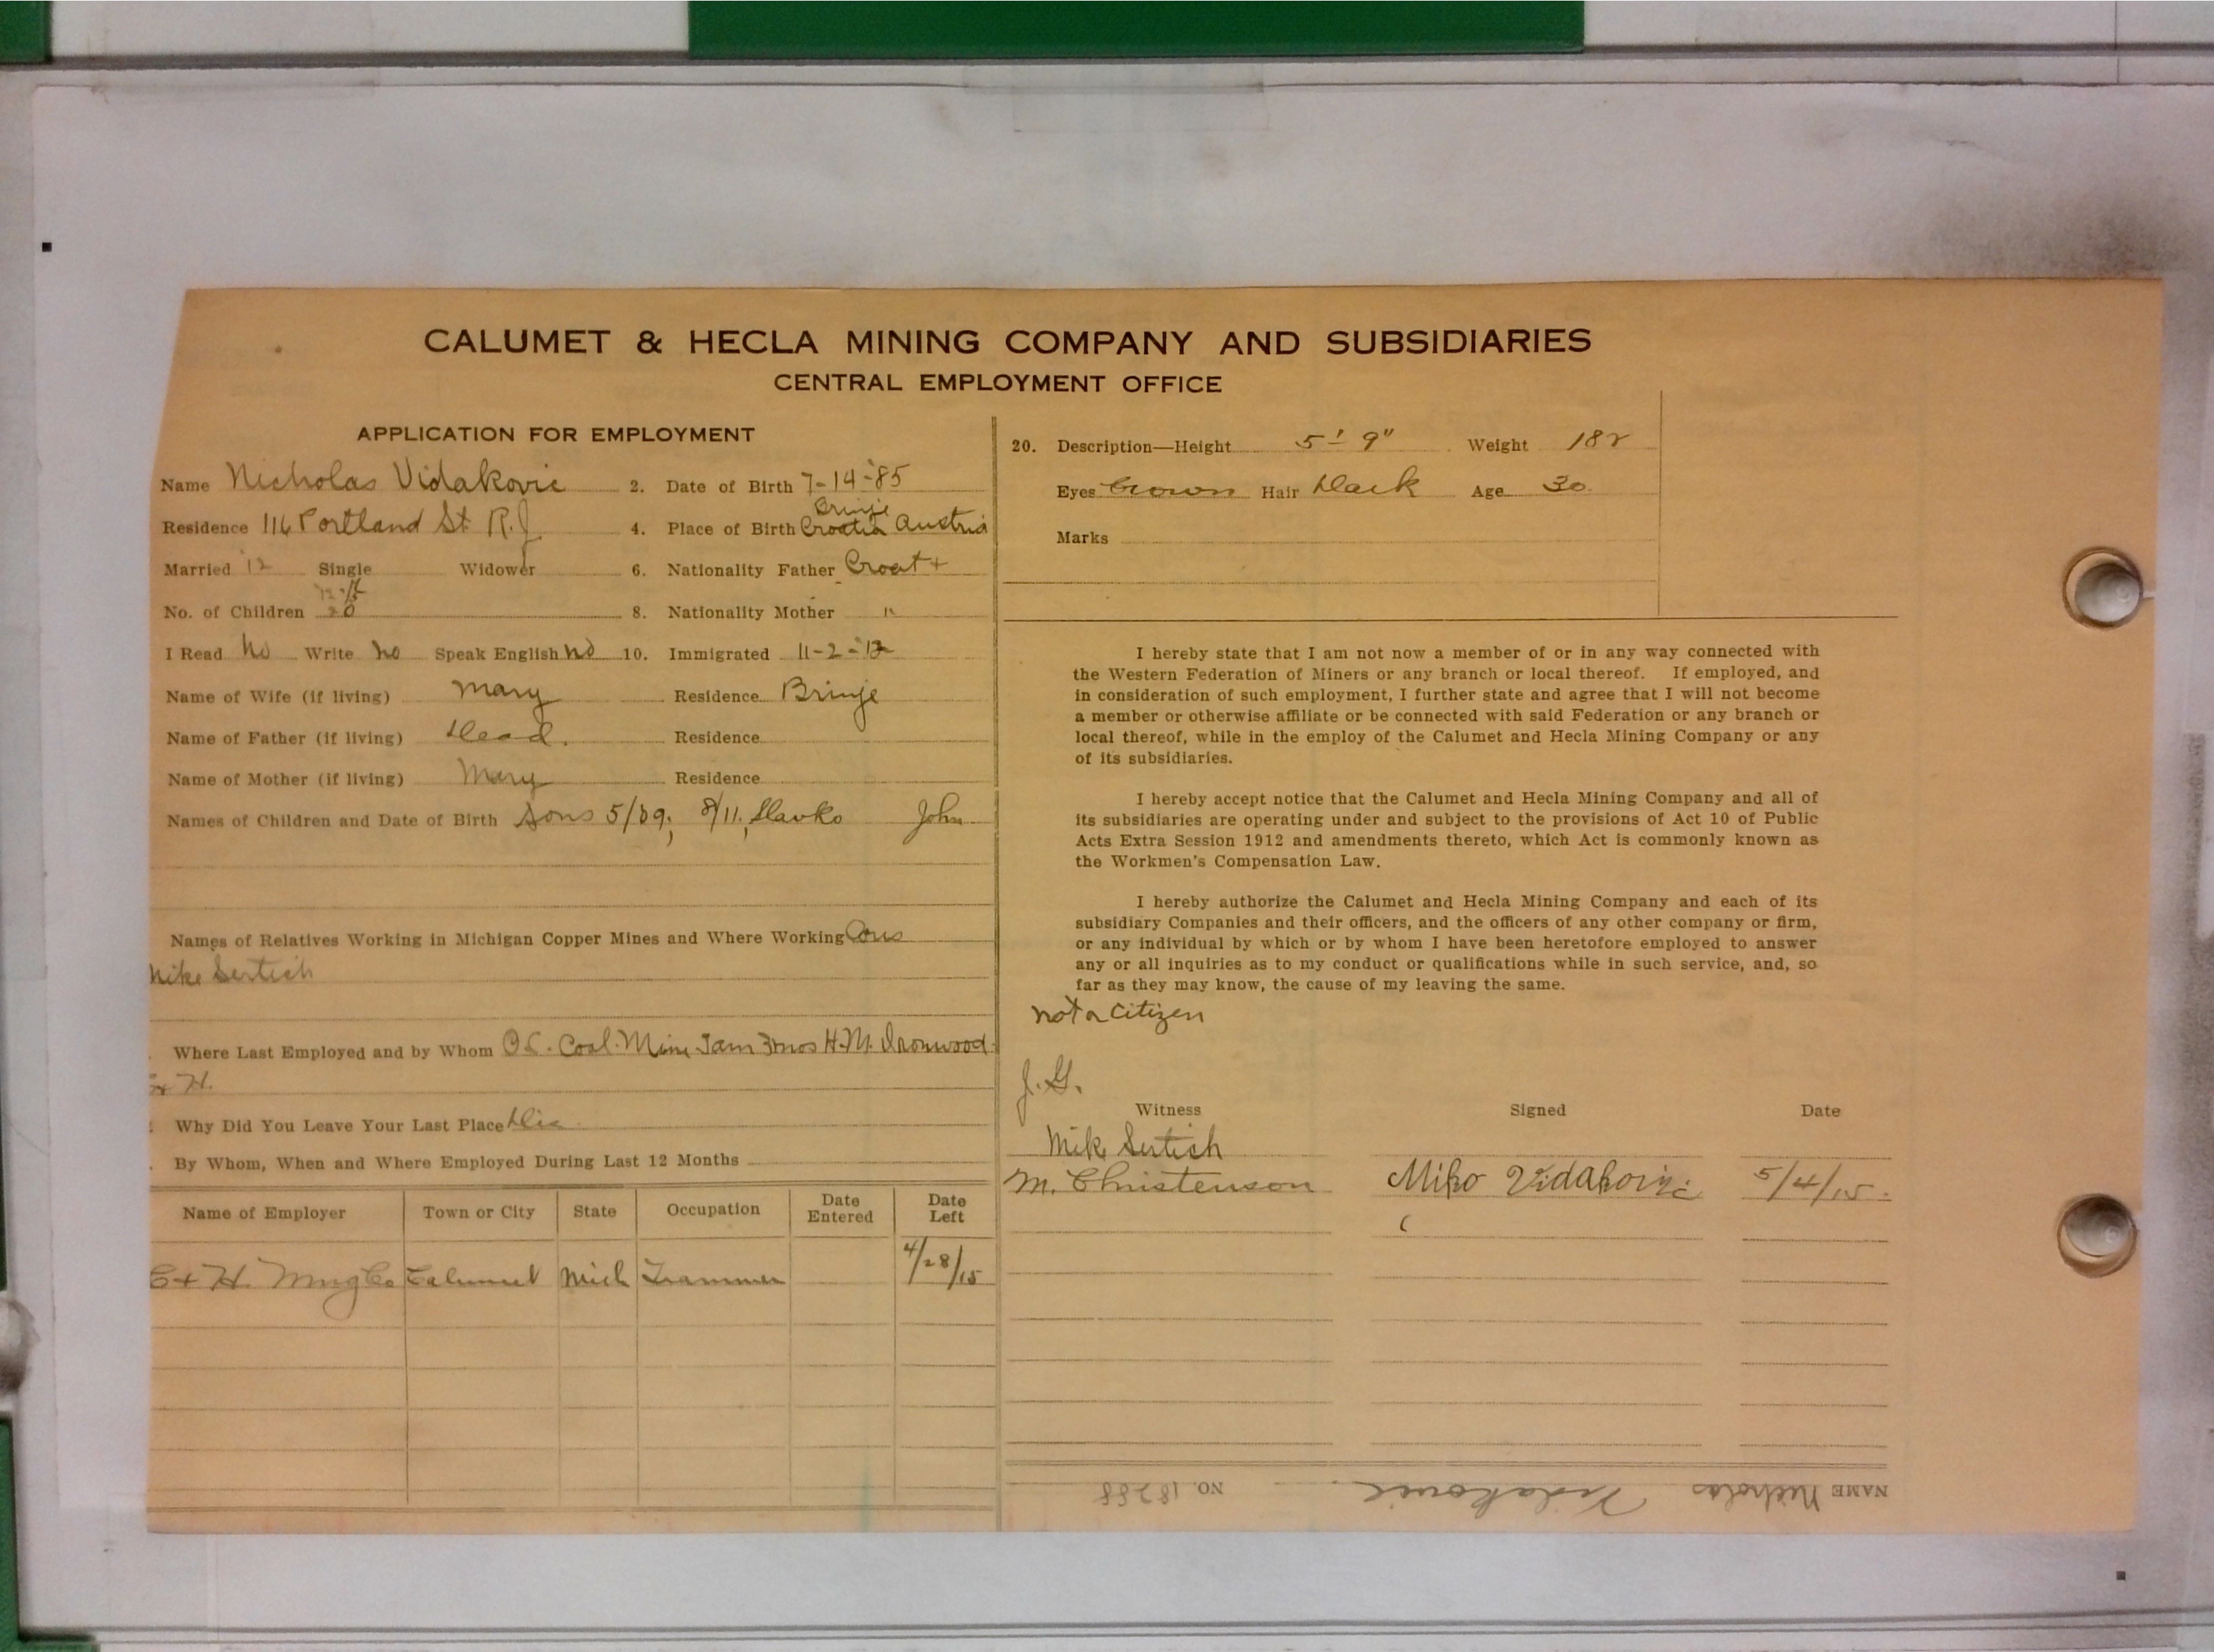 CALUMET & HECLA MINING COMPANY AND SUBSIDIARIES
CENTRAL EMPLOYMENT OFFICE
APPLICATION FOR EMPLOYMENT
Name Nicholas Vidakovic 2. Date of Birth 7-14-85
Residence 116 Portland St R.J. 4. Place of Birth Brinje Croatia Austria
Married 12 Single Widower 6. Nationality Father Croat +
No. of Children 8. Nationality Mother "
I Read No Write No Speak English No 10. Immigrated 11-2-12
Name of Wife (if living) Mary Residence Brinje
Name of Father (if living) Dead. Residence
Name of Mother (if living) Mary Residence
Names of Children and Date of Birth Sons 5/09; 8/11, Slavko John
Names of Relatives Working in Michigan Copper Mines and Where Working Cous
Mike Sertich
Where Last Employed and by Whom Coal Mine 3mos H.M. Ironwood
& H.
Why Did You Leave Your Last Place Dis
By Whom, When and Where Employed During Last 12 Months
Name of Employer Town or City State Occupation Date Entered Date Left
C & H Mng Co Calumet Mich Trammer 4/28/15
20. Description—Height 5' 9" Weight 182
Eyes Brown Hair Dark Age 30
Marks
I hereby state that I am not now a member of or in any way connected with
the Western Federation of Miners or any branch or local thereof. If employed, and
in consideration of such employment, I further state and agree that I will not become
a member or otherwise affiliate or be connected with said Federation or any branch or
local thereof, while in the employ of the Calumet and Hecla Mining Company or any
of its subsidiaries.
I hereby accept notice that the Calumet and Hecla Mining Company and all of
its subsidiaries are operating under and subject to the provisions of Act 10 of Public
Acts Extra Session 1912 and amendments thereto, which Act is commonly known as
the Workmen's Compensation Law.
I hereby authorize the Calumet and Hecla Mining Company and each of its
subsidiary Companies and their officers, and the officers of any other company or firm,
or any individual by which or by whom I have been heretofore employed to answer
any or all inquiries as to my conduct or qualifications while in such service, and, so
far as they may know, the cause of my leaving the same.
not a citizen
J. G.
Witness Signed Date
Mike Sertich
M. Christenson Miko Vidakovic 5/4/15.
NAME Nicholas Vidakovic NO. 18288